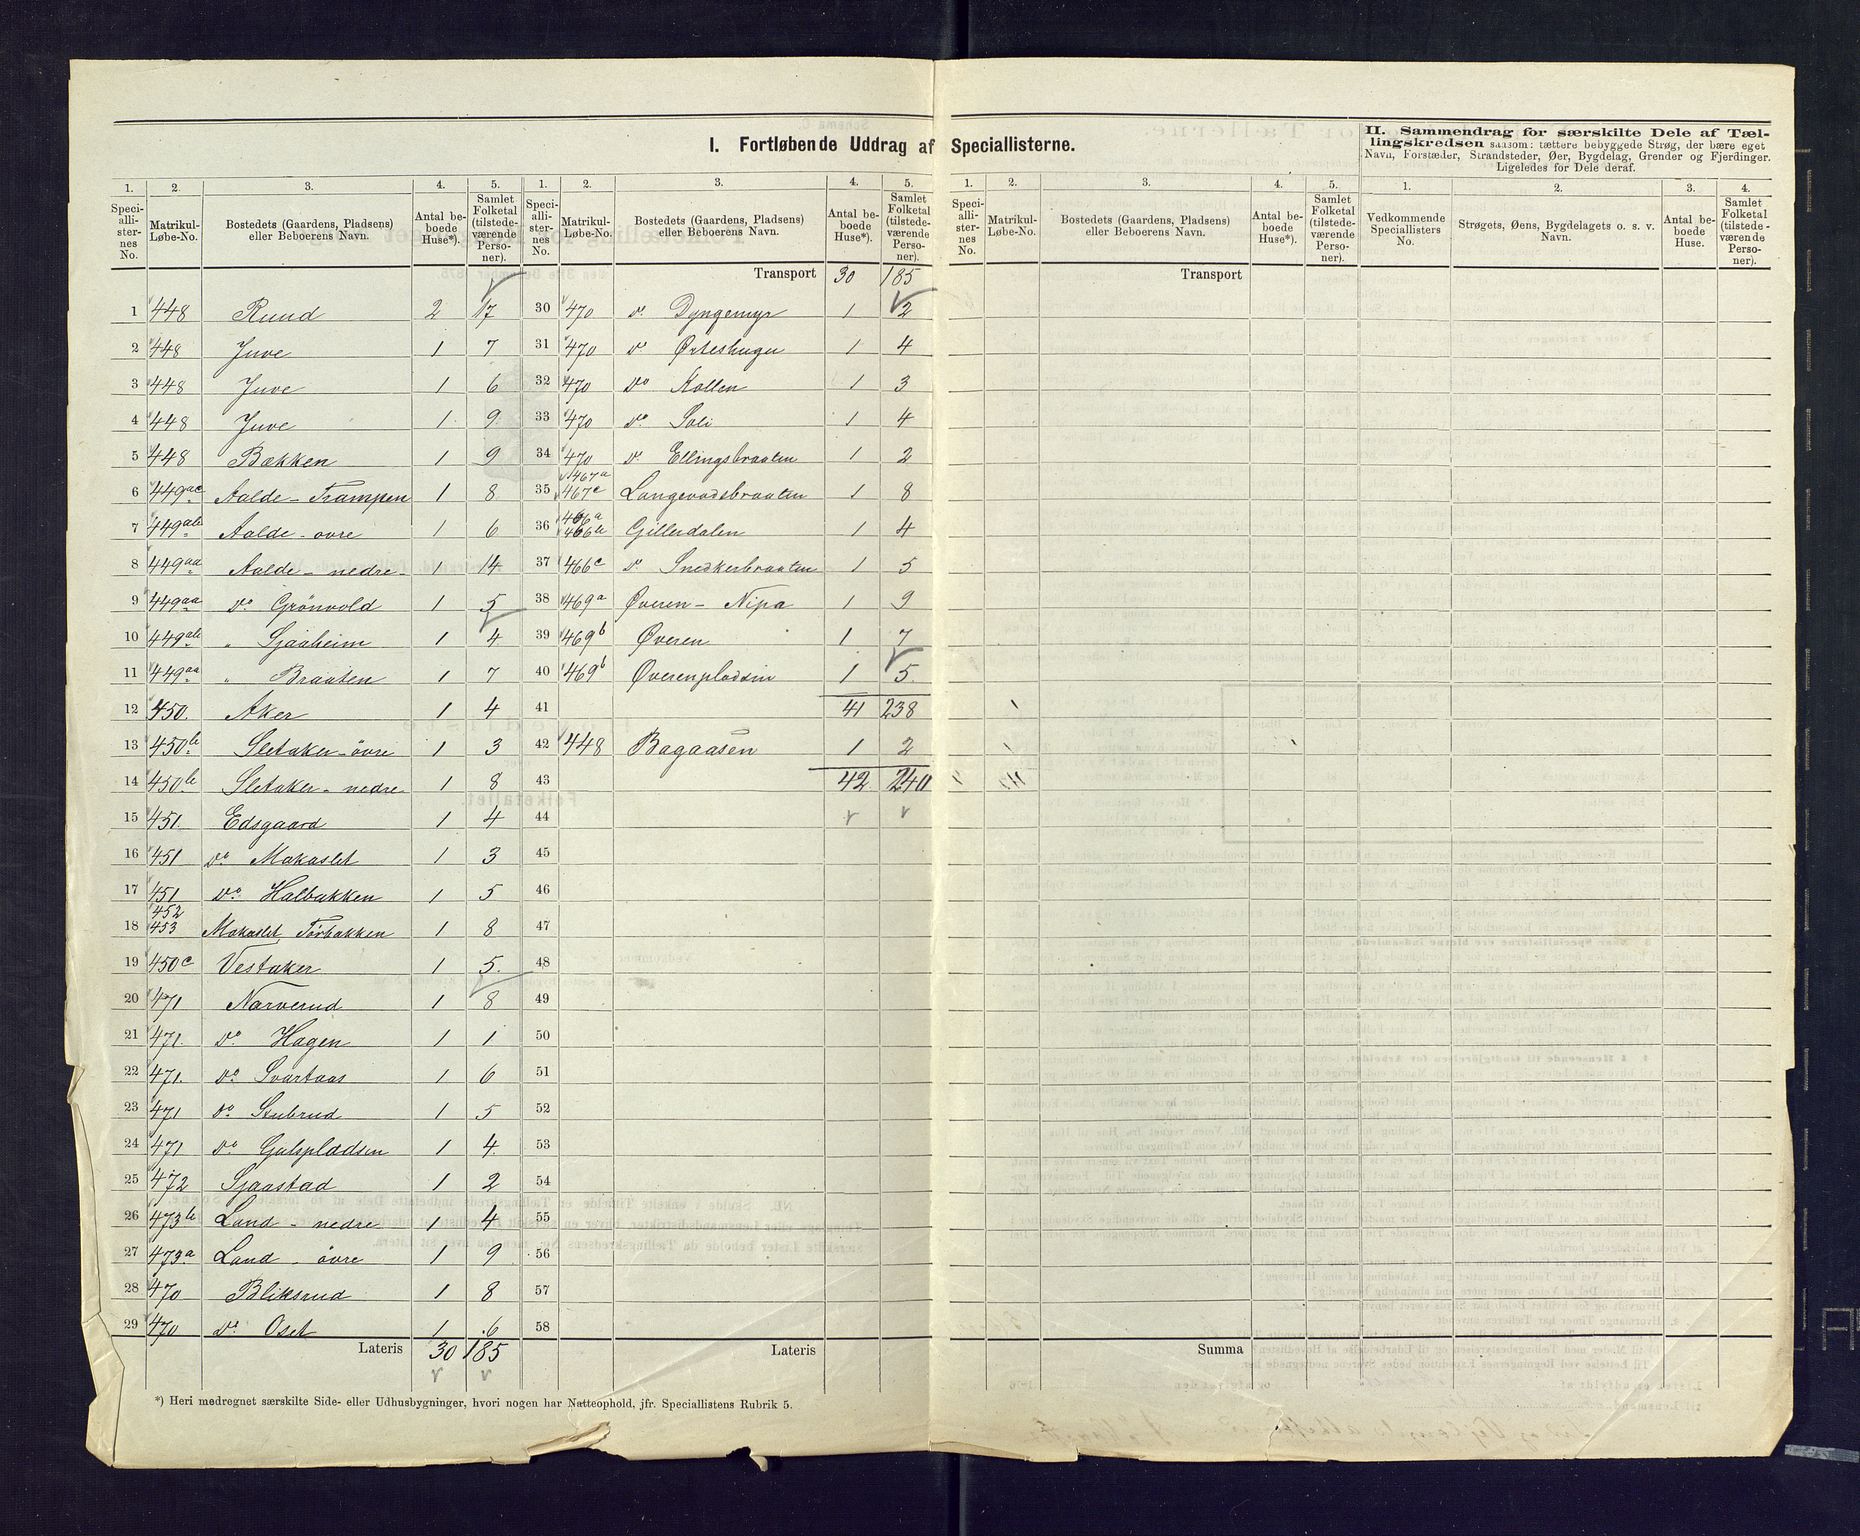 I. Fortløbende Uddrag af Speciallisterne.
II. Sammendrag for særskilte Dele af Tællingskredsen saasom: tættere bebyggede Strøg, der bære eget Navn, Forstæder, Strandsteder, Øer, Bygdelag, Grender og Fjerdinger. Ligeledes for Dele deraf.
1. 2. 3. 4. 5. 1. 2. 3. 4. 5. 1. 2. 3. 4. 5. 1. 2. 3. 4.
Speciallisternes No. Matrikul-Løbe-No. Bostedets (Gaardens, Pladsens) eller Beboerens Navn. Antal beboede Huse*). Samlet Folketal (tilstedeværende Personer).
Speciallisternes No. Matrikul-Løbe-No. Bostedets (Gaardens, Pladsens) eller Beboerens Navn. Antal beboede Huse*). Samlet Folketal (tilstedeværende Personer).
Speciallisternes No. Matrikul-Løbe-No. Bostedets (Gaardens, Pladsens) eller Beboerens Navn. Antal beboede Huse*). Samlet Folketal (tilstedeværende Personer).
Vedkommende Speciallisters No. Strøgets, Øens, Bygdelagets o. s. v. Navn. Antal beboede Huse. Samlet Folketal (tilstedeværende Personer).
1 448 Ruud 2 17
2 448 Juve 1 7
3 448 Juve 1 6
4 448 Juve 1 9
5 448 Bækken 1 9
6 449ac Aalde - Trampen 1 8
7 449ab Aalde - øvre 1 6
8 449aa Aalde - nedre - 1 14
9 449aa do Grönvold 1 5
10 449ab " Sjaaheim 1 4
11 449aa " Braaten 1 7
12 450. Aker 1 4
13 450b Sletaker - övre 1 3
14 450b Sletaker - nedre 1 8
15 451. Edsgaard 1 4
16 451 do Makaslet 1 3
17 451 do Halbakken 1 5
18 452 453 Makaslet Törbakken 1 8
19 450c Vestaker 1 5.
20 471 Narverud 1 8
21 471. do Hagen 1 1
22 471. do Svartaas 1 6
23 471 do Stubrud 1 5
24 471 do Galspladsen 1 4.
25 472 Sjaastad 1 2
26 473b Land - nedre 1 4
27 473a Land - övre 1 9
28 470 Bliksrud 1 8
29 470 do Oset 1 6
Lateris 30 185
Transport 30 185
30 470 do Dyngemyr 1 2
31 470 do Ørteshuger 1 4
32 470 do Kollen 1 3
33 470 do Soli 1 4
34 470 do Ellingsbraaten 1 2
35 467a 467c Langevadsbraaten 1 8
36 466a 466b Gillerdalen 1 4
37 466c do Snedkerbraaten 1 5
38 469a Øveren - Nipa 1 9
39 469b Øveren 1 7
40 469b Øverenpladsen 1 5.
41 41 238
42 448 Bagaasen 1 2
43 42 240
44
45
46
47
48
49
50
51
52
53
54
55
56
57
58
Lateris
Transport
Summa
*) Heri medregnet særskilte Side- eller Udhusbygninger, hvori nogen har Natteophold, jfr. Speciallistens Rubrik 5.